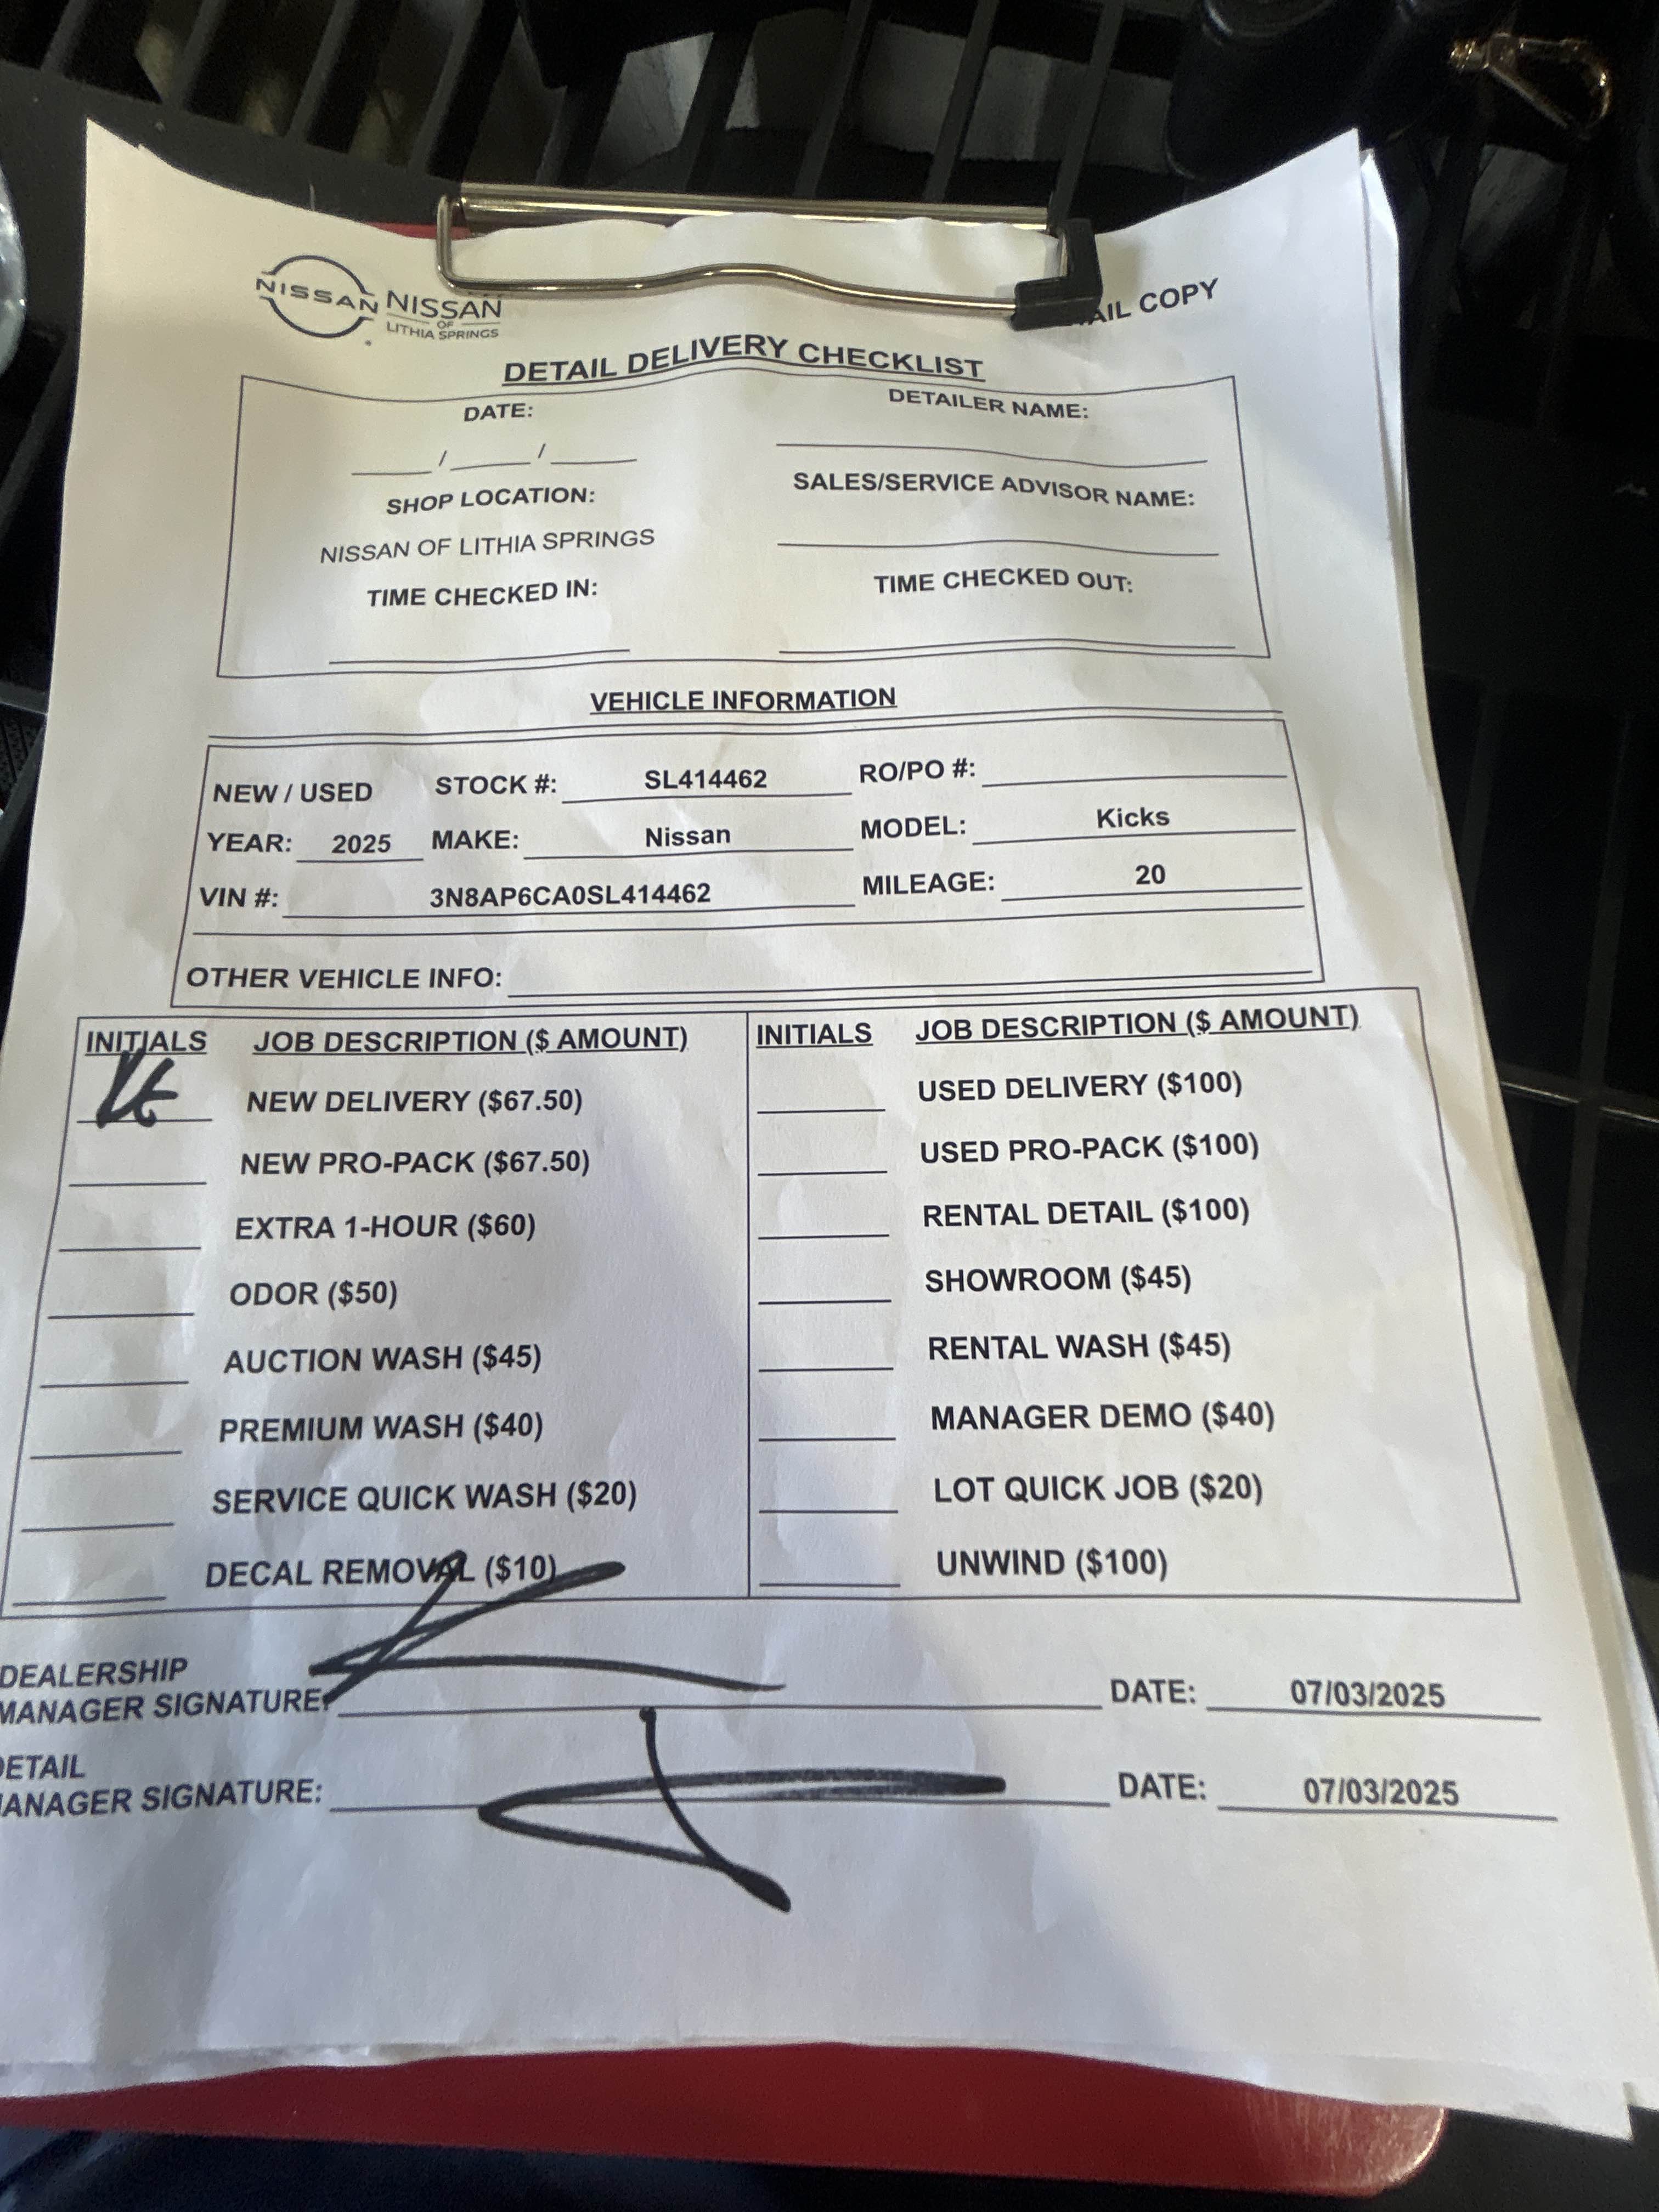 NISSAN NISSAN
OF
LITHIA SPRINGS
AIL COPY
DETAIL DELIVERY CHECKLIST
DATE: DETAILER NAME:
____/____/____ ____
SHOP LOCATION: SALES/SERVICE ADVISOR NAME:
NISSAN OF LITHIA SPRINGS
TIME CHECKED IN: TIME CHECKED OUT:
VEHICLE INFORMATION
NEW / USED STOCK #: SL414462 RO/PO #:
YEAR: 2025 MAKE: Nissan MODEL: Kicks
VIN #: 3N8AP6CA0SL414462 MILEAGE: 20
OTHER VEHICLE INFO:
INITIALS JOB DESCRIPTION ($ AMOUNT) INITIALS JOB DESCRIPTION ($ AMOUNT)
NEW DELIVERY ($67.50) USED DELIVERY ($100)
NEW PRO-PACK ($67.50) USED PRO-PACK ($100)
EXTRA 1-HOUR ($60) RENTAL DETAIL ($100)
ODOR ($50) SHOWROOM ($45)
AUCTION WASH ($45) RENTAL WASH ($45)
PREMIUM WASH ($40) MANAGER DEMO ($40)
SERVICE QUICK WASH ($20) LOT QUICK JOB ($20)
DECAL REMOVAL ($10) UNWIND ($100)
DEALERSHIP
MANAGER SIGNATURE: DATE: 07/03/2025
DETAIL
MANAGER SIGNATURE: DATE: 07/03/2025